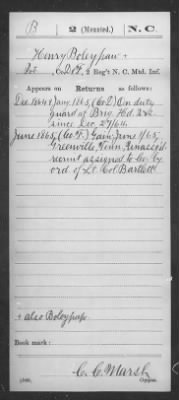 B 2 (Mounted.) N.C.
Henry Boleypaw +
Pvt., Co. D & F, 2 Reg't N. C. Mtd. Inf.
Appears on Returns as follows:
Dec. 1864 & Jany. 1865, (Co. D) On duty
guard at Brig. Hd. Qrs.
since Dec. 27/64.
June 1865, (Co. F.) Gain: June 1/65,
Greenville, Tenn, Unassg'd
recruit assigned to Co. by
ord of Lt. Col. Bartlett.
+ also Boleypap.
Book mark:
C. C. Marsh
Copyist.